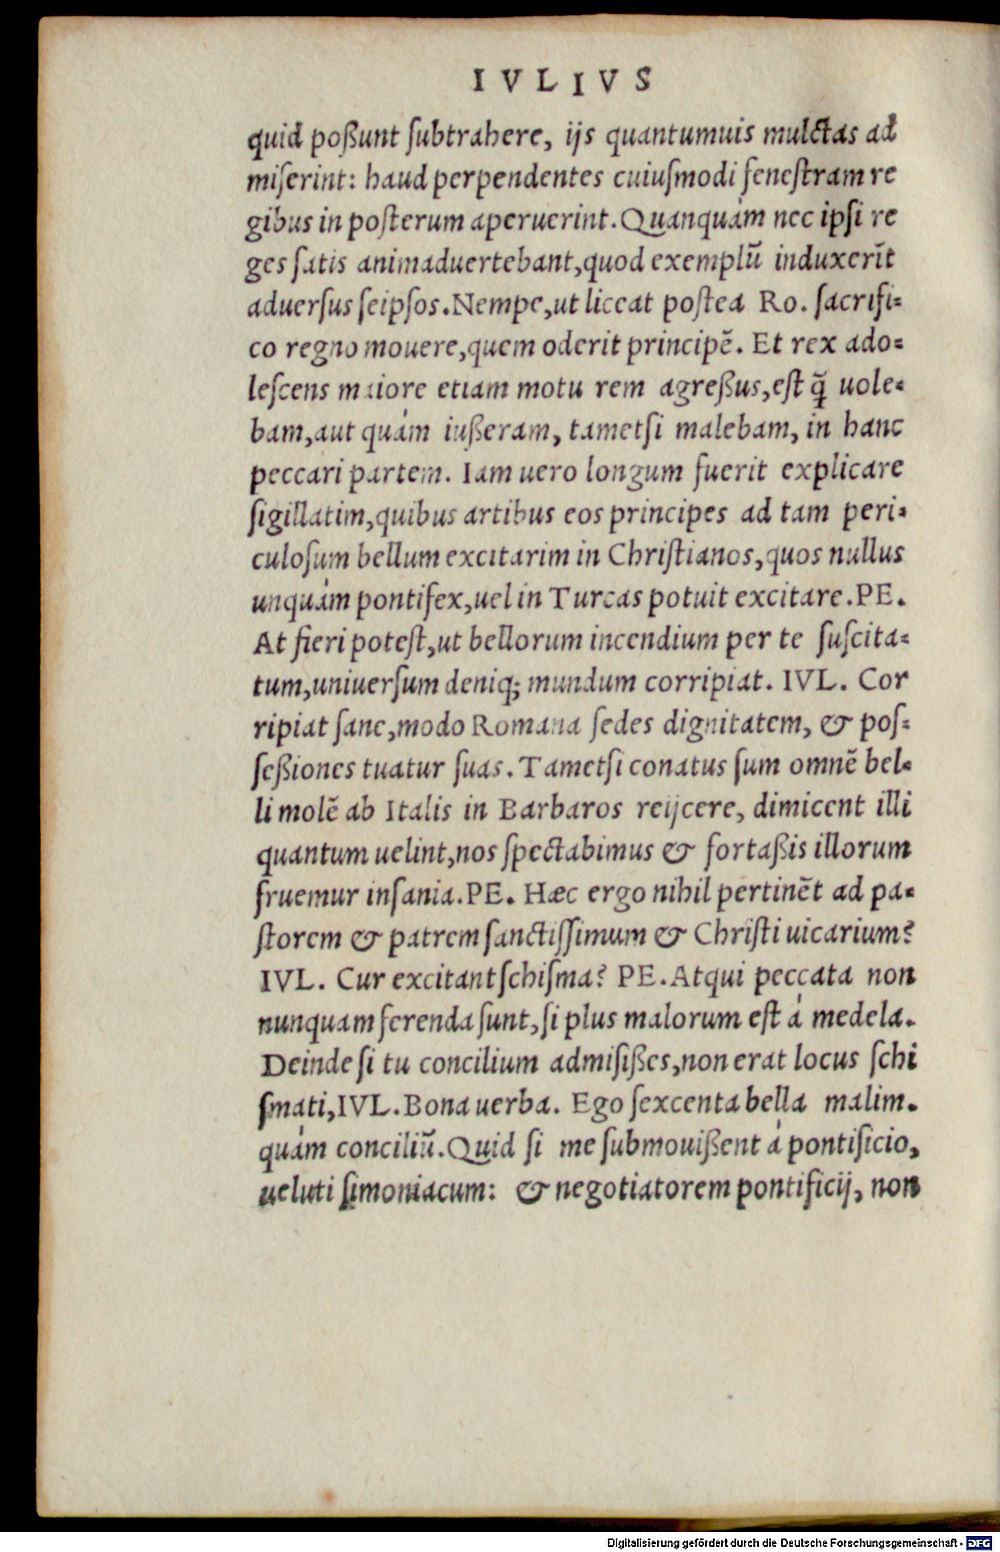 IVLIVS
quid poßunt ſubtrahere, ijs quantumuis mulctas ad
miſerint: haud perpendentes cuiuſmodi feneſtram re
gibus in poſterum aperuerint. Quanquàm nec ipſi re
ges ſatis animaduertebant, quod exemplũ induxerĩt
aduerſus ſeipſos. Nempe, ut liceat poſtea Ro. ſacrifi-
co regno mouere, quem oderit principẽ. Et rex ado-
leſcens maiore etiam motu rem agreßus, eſt q̃ uole-
bam, aut quàm iußeram, tametſi malebam, in hanc
peccari partem. Iam uero longum fuerit explicare
ſigillatim, quibus artibus eos principes ad tam peri-
culoſum bellum excitarim in Chriſtianos, quos nullus
unquàm pontifex, uel in Turcas potuit excitare. PE.
At fieri poteſt, ut bellorum incendium per te ſuſcita-
tum, uniuerſum deniq; mundum corripiat. IVL. Cor
ripiat ſane, modo Romana ſedes dignitatem, & poſ-
ſeßiones tuatur ſuas. Tametſi conatus ſum omnẽ bel-
li molẽ ab Italis in Barbaros reijcere, dimicent illi
quantum uelint, nos ſpectabimus & fortaßis illorum
fruemur inſania. PE. Hæc ergo nihil pertinẽt ad pa-
ſtorem & patrem ſanctiſſimum & Chriſti uicarium?
IVL. Cur excitant ſchiſma? PE. Atqui peccata non
nunquam ferenda ſunt, ſi plus malorum eſt à medela.
Deinde ſi tu concilium admiſißes, non erat locus ſchi
ſmati, IVL. Bona uerba. Ego ſexcenta bella malim.
quàm conciliũ. Quid ſi me ſubmouißent à pontificio,
ueluti ſimoniacum: & negotiatorem pontificij, non
Digitalisierung gefördert durch die Deutsche Forschungsgemeinschaft - DFG